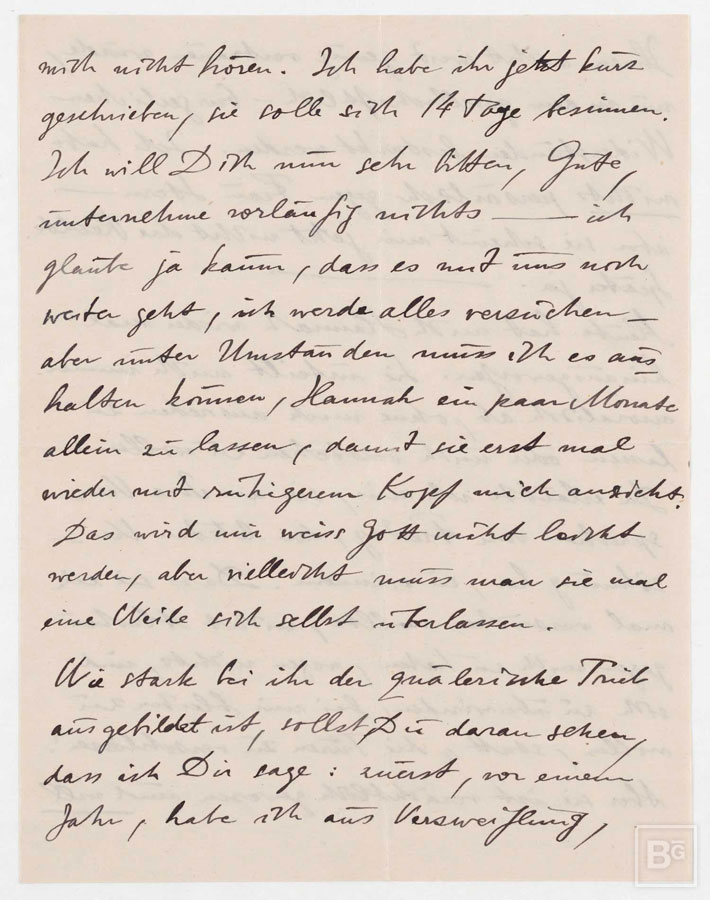 mich nicht hören. Ich habe ihr jetzt kurz
geschrieben, sie solle sich 14 Tage besinnen.
Ich will Dich nun sehr bitten, Gute,
unternehme vorläufig nichts — ich
glaube ja kaum, dass es mit uns noch
weiter geht, ich werde alles versuchen –
aber unter Umständen muss ich es aus
halten können, Hannah ein paar Monate
allein zu lassen, damit sie erst mal
wieder mit ruhigerem Kopf mich ansieht.
Das wird mir weiss Gott nicht leicht
werden, aber vielleicht muss man sie mal
eine Weile sich selbst überlassen.
Wie stark bei ihr der quälerische Trieb
ausgebildet ist, sollst Du daran sehen,
dass ich Dir sage: zuerst, vor einem
Jahr, habe ich aus Verzweiflung,
BG